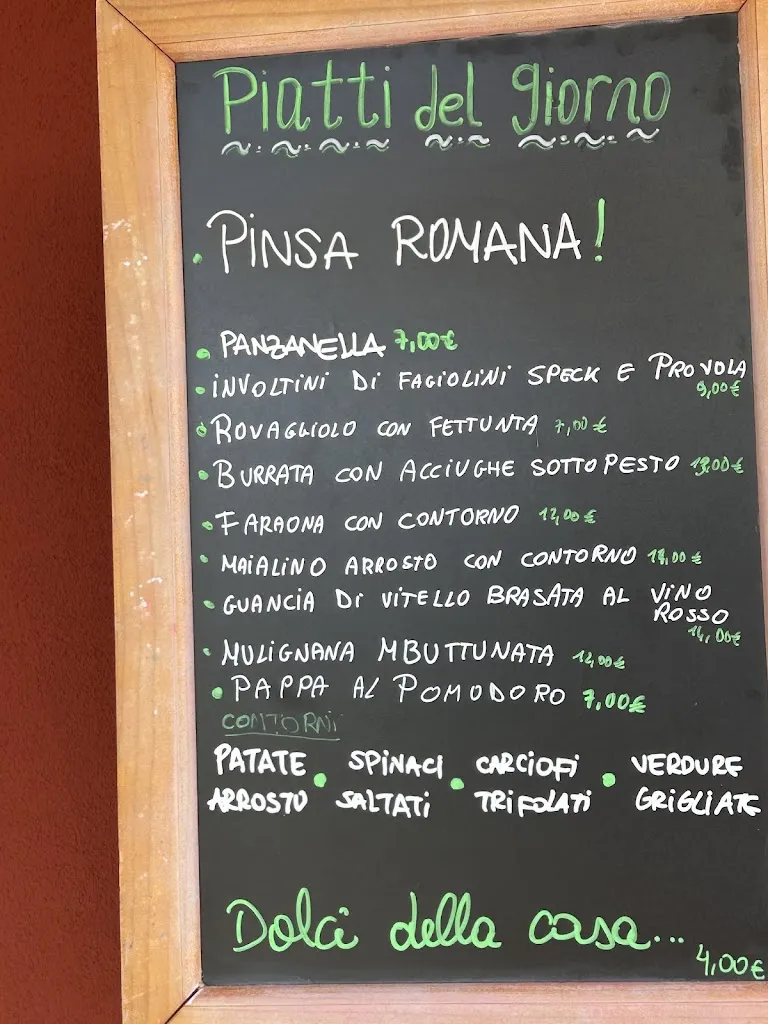 Piatti del giorno
• PINSA ROMANA!
• PANZANELLA 7,00€
• INVOLTINI DI FAGIOLINI SPECK E PROVOLA
9,00€
• ROVAGLIOLO CON FETTUNTA 7,00€
• BURRATA CON ACCIUGHE SOTTO PESTO
• FARAONA CON CONTORNO 12,00€
• MAIALINO ARROSTO CON CONTORNO
• GUANCIA DI VITELLO BRASATA AL VINO
ROSSO
14,00€
• MULIGNANA MBUTTUNATA 12,00€
• PAPPA AL POMODORO 7,00€
CONTORNI
PATATE • SPINACI • CARCIOFI • VERDURE
ARROSTO SALTATI TRIFOLATI GRIGLIATE
Dolci della casa...
4,00€